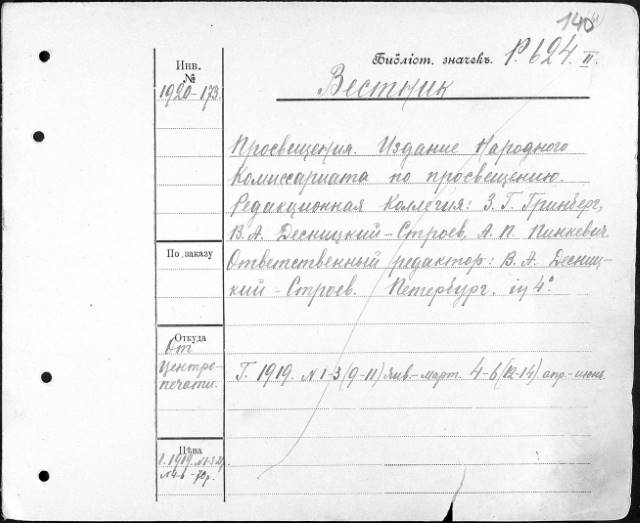 140
Библіот. значекъ. Р. 624. II.
Инв.
№
1920-173.
Вестник
Просвещения. Издание Народного
Комиссариата по просвещению.
Редакционная Коллегия: З. Г. Гринберг,
В. А. Десницкий-Строев, А. П. Пинкевич
По заказу
Ответственный редактор: В. А. Десниц-
кий-Строев. Петербург. in 4°.
Откуда
От
Центро-
печати.
Г. 1919. N 1-3 (9-11) янв.-март. 4-6 (12-14) апр.-июнь
Цѣна
Г. 1919. N 1-3
N 4-6 - 70 р.